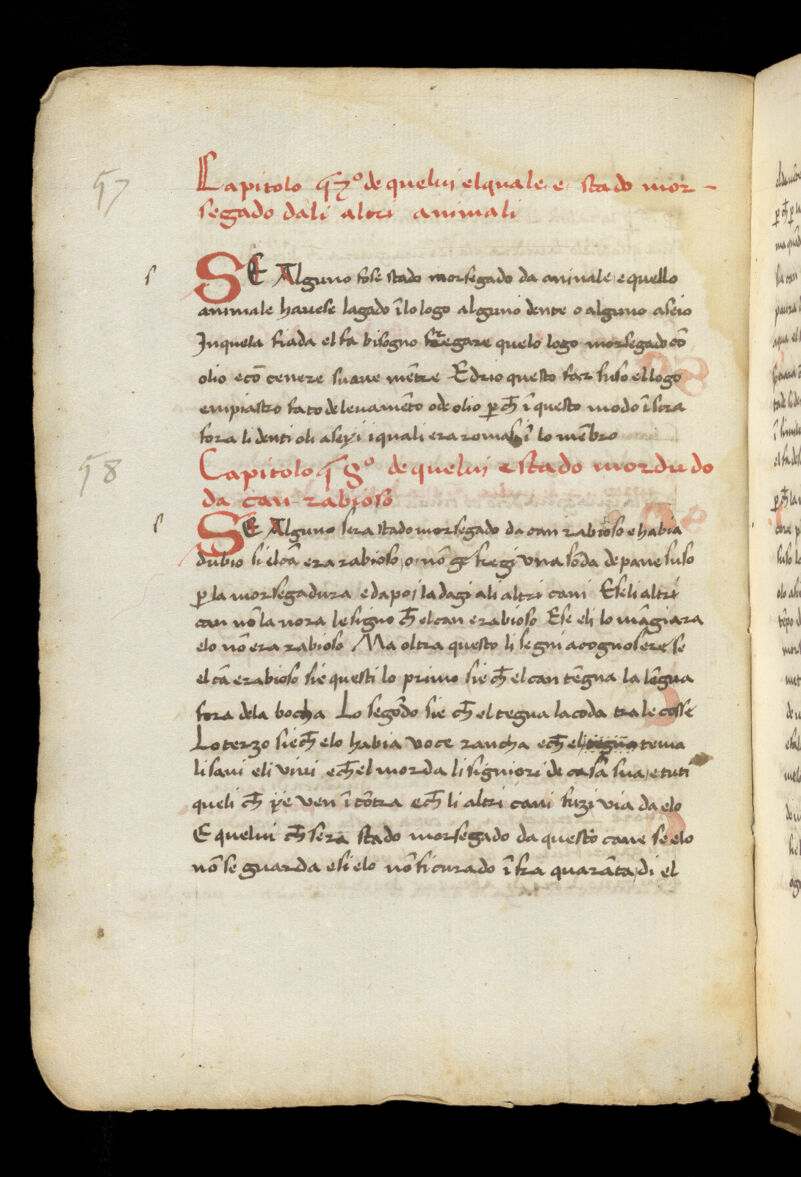 57
Capitolo 57º de quelui el quale e stado mor-
segado dali altri animali
s
SE Alguno fose stado morsegado da animale e quello
animale havese lagado ĩ lo logo alguno dente o alguno aseio
Inquela fiada el fa bisogno fregare quelo logo morsegado cõ
olio e cõ cenere suave mẽtre E drio questo far suso el logo
empiastro fato de levamẽto o de olio p ch ĩ questo modo ĩsira
fora li denti oli aseii i quali era romasi ĩ lo mẽbro
58
Capitolo 58º de quelui e stado mordudo
da can rabioso
s
SE Alguno sera stado morsegado da can rabioso e habia
dubio si el cã era rabioso o nõ fregi una soda de pane suso
p la morsegadura e dapoi la dagi ali altri cani E se li altri
can nõ la vora le signo ch el can e rabioso E se eli lo mãgiara
elo nõ era rabioso Ma oltra questo li segni a cognosere se
el cã e rabioso sie questi lo primo sie ch el can tẽgna la lẽgua
fora dela bocha Lo segõdo sie ch el tegna la coda tra le cosse
Lo terzo sie ch elo habia voce rancha e ch el tema
li savi e li vini e ch el morda li signiori de casa sua e tuti
queli ch ye ven ĩ cõtra e ch li altri cani fuzi via da elo
E quelui ch sera stado morsegado da questo cane se elo
nõ se guarda e si elo nõ fi curado ĩfra quarãta di el